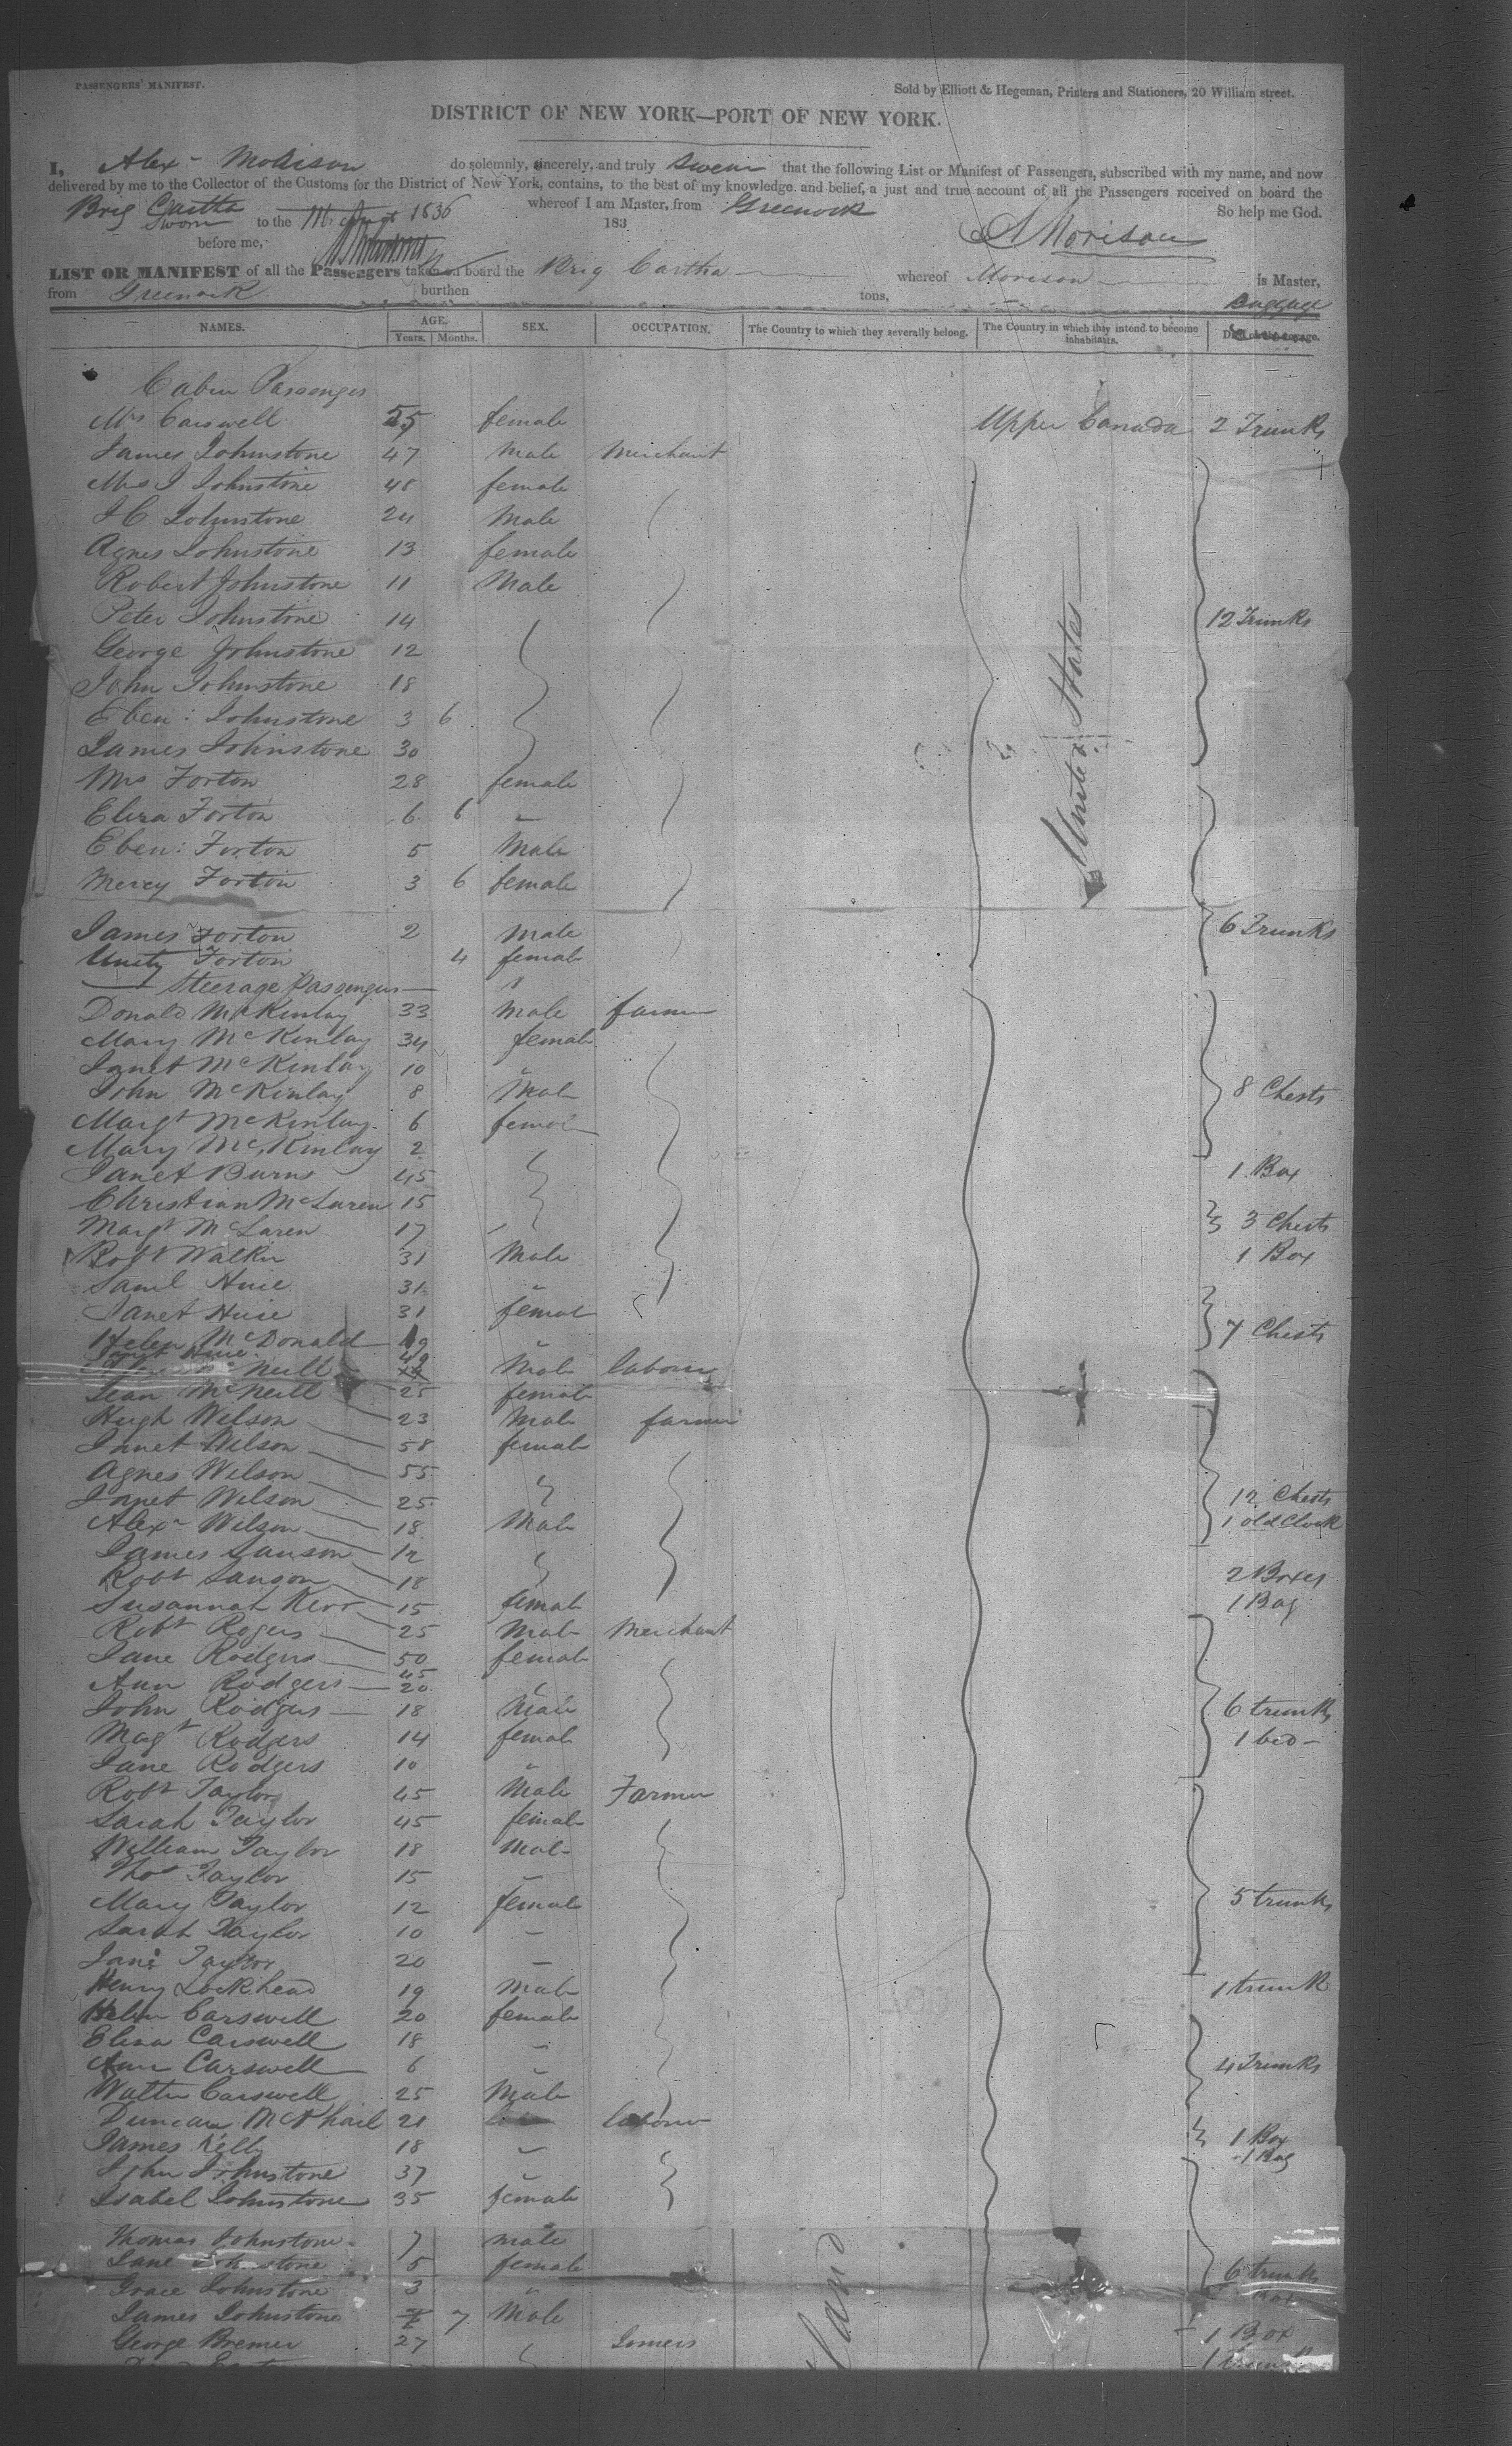 PASSENGERS' MANIFEST.
Sold by Elliott & Hegeman, Printers and Stationers, 20 William street.
DISTRICT OF NEW YORK—PORT OF NEW YORK.
I, Alexr Morison do solemnly, sincerely, and truly Swear that the following List or Manifest of Passengers, subscribed with my name, and now
delivered by me to the Collector of the Customs for the District of New York, contains, to the best of my knowledge and belief, a just and true account of all the Passengers received on board the
Brig Cartha whereof I am Master, from Greenock So help me God.
Sworn to the 1836 183
before me, A Morison
LIST OR MANIFEST of all the Passengers taken on board the Brig Cartha whereof Morison is Master,
from Greenock burthen tons,
Baggage
NAMES. AGE. SEX. OCCUPATION. The Country to which they severally belong. The Country in which they intend to become inhabitants.
Years. Months.
Cabin Passengers
Mrs Carswell 55 female Upper Canada 2 Trunks
James Johnstone 47 Male Merchant
Mrs J Johnstone 48 female
J C Johnstone 24 Male
Agnes Johnstone 13 female
Robert Johnstone 11 Male
Peter Johnstone 14 12 Trunks
George Johnstone 12
John Johnstone 18
Eben: Johnstone 3 6
James Johnstone 30
United States
Mrs Forton 28 female
Eliza Forton 6 6 —
Eben: Forton 5 Male
Mercy Forton 3 6 female
James Forton 2 male 6 Trunks
Unity Forton 4 female
Steerage Passengers
Donald McKinlay 33 male farmer
Mary McKinlay 34 female
Janet McKinlay 10
John McKinlay 8 Male 8 Chests
Margt McKinlay 6 female
Mary McKinlay 2
Janet Burns 45 1 Box
Christian McLaren 15
Margt McLaren 17 3 Chests
Robt Walker 31 Male 1 Box
Saml Huie 31
Janet Huie 31 female
Helen McDonald 19 7 Chests
Janet Huie 49
McNeill Male labourer
Jean McNeill 25 female
Hugh Wilson 23 Male farmer
Janet Wilson 58 female
Agnes Wilson 55
Janet Wilson 25 12 Chests
Alexr Wilson 18 Male 1 old Clock
James Lawson 12
Robt Lawson 18 2 Boxes
Susannah Kerr 15 female 1 Bag
Robt Rogers 25 Male Merchant
Jane Rodgers 50 female
45
Ann Rodgers 20
John Rodgers 18 Male 6 trunks
Magt Rodgers 14 female 1 bed
Jane Rodgers 10
Robt Taylor 45 Male Farmer
Sarah Taylor 45 female
William Taylor 18 Male
Thos Taylor 15
Mary Taylor 12 female 5 trunks
Sarah Taylor 10 —
Jane Taylor 20 —
Henry Lockhead 19 Male 1 trunk
Helen Carswell 20 female
Eliza Carswell 18
Ann Carswell 6 4 Trunks
Walter Carswell 25 Male
Duncan McPhail 21 labourer
James Kelly 18 1 Box
1 Bag
John Johnstone 37
Isabel Johnstone 35 female
Thomas Johnstone 7 male
Jane Johnstone 5 female 6 trunks
Grace Johnstone 3
James Johnstone 7 Male
George Bremer 27 1 Box